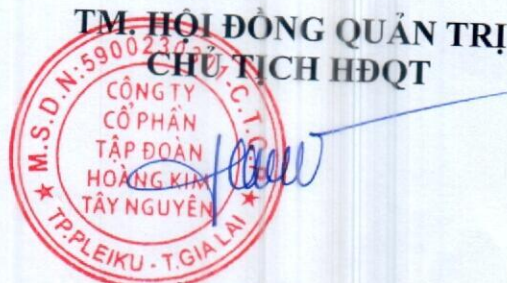 TM. HỘI ĐỒNG QUẢN TRỊ
CHỦ TỊCH HĐQT
M.S.D.N:5900230
C.T.C
CÔNG TY
CỔ PHẦN
TẬP ĐOÀN
HOÀNG KIM
TÂY NGUYÊN
TP.PLEIKU - T.GIA LAI